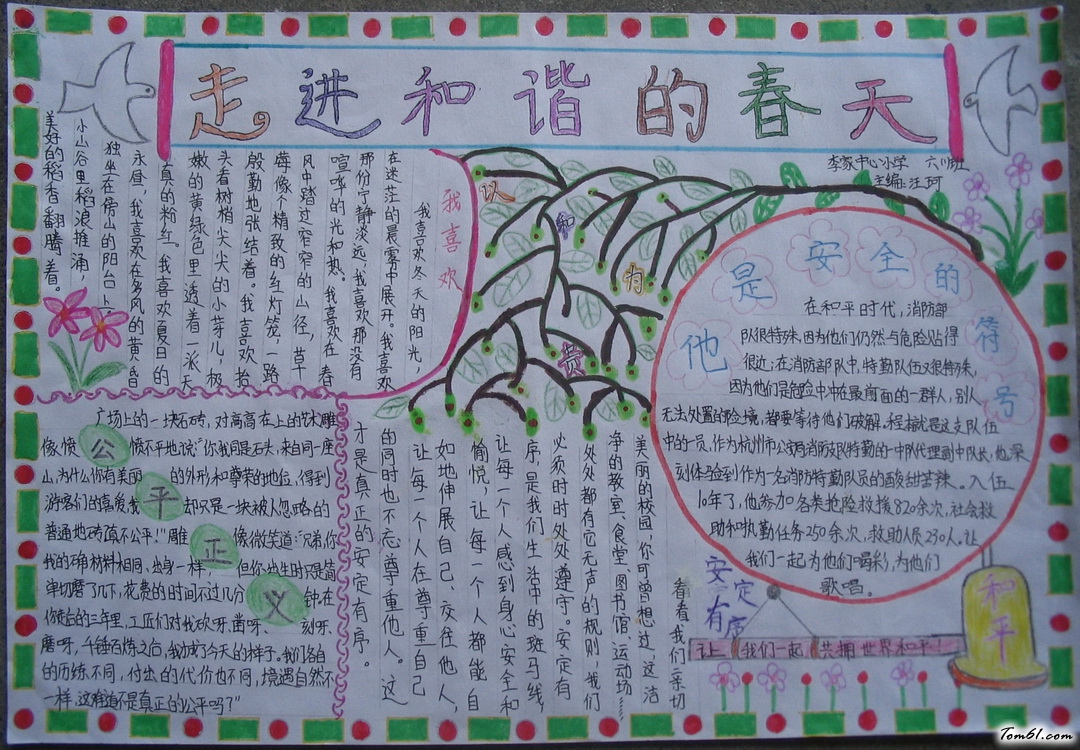 走进和谐的春天
李家中心小学 六(1)班
主编:汪珂
我喜欢
我喜欢冬天的阳光，
在迷茫的晨雾中展开。我喜欢
那份宁静淡远，我喜欢那没有
喧哗的光和热。我喜欢在春
风中踏过窄窄的山径，草
莓像个精致的红灯笼，一路
殷勤地张结着。我喜欢抬
头看树梢尖尖的小芽儿，极
嫩的黄绿色里透着一派天
真的粉红。我喜欢夏日的
永昼，我喜欢在多风的黄昏
独坐在傍山的阳台上
小山谷里稻浪推涌，
美好的稻香翻腾着。
以和为贵
他是安全的符号
在和平时代，消防部
队很特殊，因为他们仍然与危险贴得
很近；在消防部队中，特勤队伍又很特殊，
因为他们是危险中冲在最前面的一群人，别人
无法处置的险境，都要等待他们破解，程楠就是这支队伍
中的一员，作为杭州市公消防支队特勤的一中队代理副中队长，他深
刻体验到作为一名消防特勤队员的酸甜苦辣。入伍
10年了，他参加各类抢险救援820余次，社会救
助和执勤任务250余次，救助人员230人。让
我们一起为他们喝彩，为他们
歌唱。
公平正义
广场上的一块石砖，对高高在上的艺术雕
像愤愤不平地说："你我同是石头，来自同一座
山，为什么你有美丽的外形和尊荣的地位，得到
游客们的喜爱，我却只是一块被人忽略的
普通地砖，真不公平！"雕像微笑道："兄弟，你
我的确材料相同，出身一样，但你出生时只是简
单切磨了几下，花费的时间不过几分钟。在
你后的三年里，工匠们对我砍呀、凿呀、刻呀、
磨呀，千锤百炼之后，我成了今天的样子。我们各自
的历练不同，付出的代价也不同，境遇自然不
一样，这难道不是真正的公平吗？"
安定有序
看看我们亲切
美丽的校园，你可曾想过，这洁
净的教室、食堂、图书馆、运动场……
处处都有它无声的规则，我们
必须时时处处遵守。安定有
序，是我们生活中的斑马线，
让每一个人感到身心安全和
愉悦，让每一个人都能自
如地伸展自己、交往他人，
让每一个人在尊重自己
的同时也不忘尊重他人。这
才是真正的安定有序。
让我们一起共拥世界和平！
和平
Tom61.com